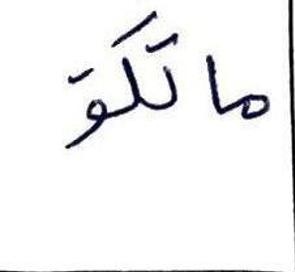 ماتكو